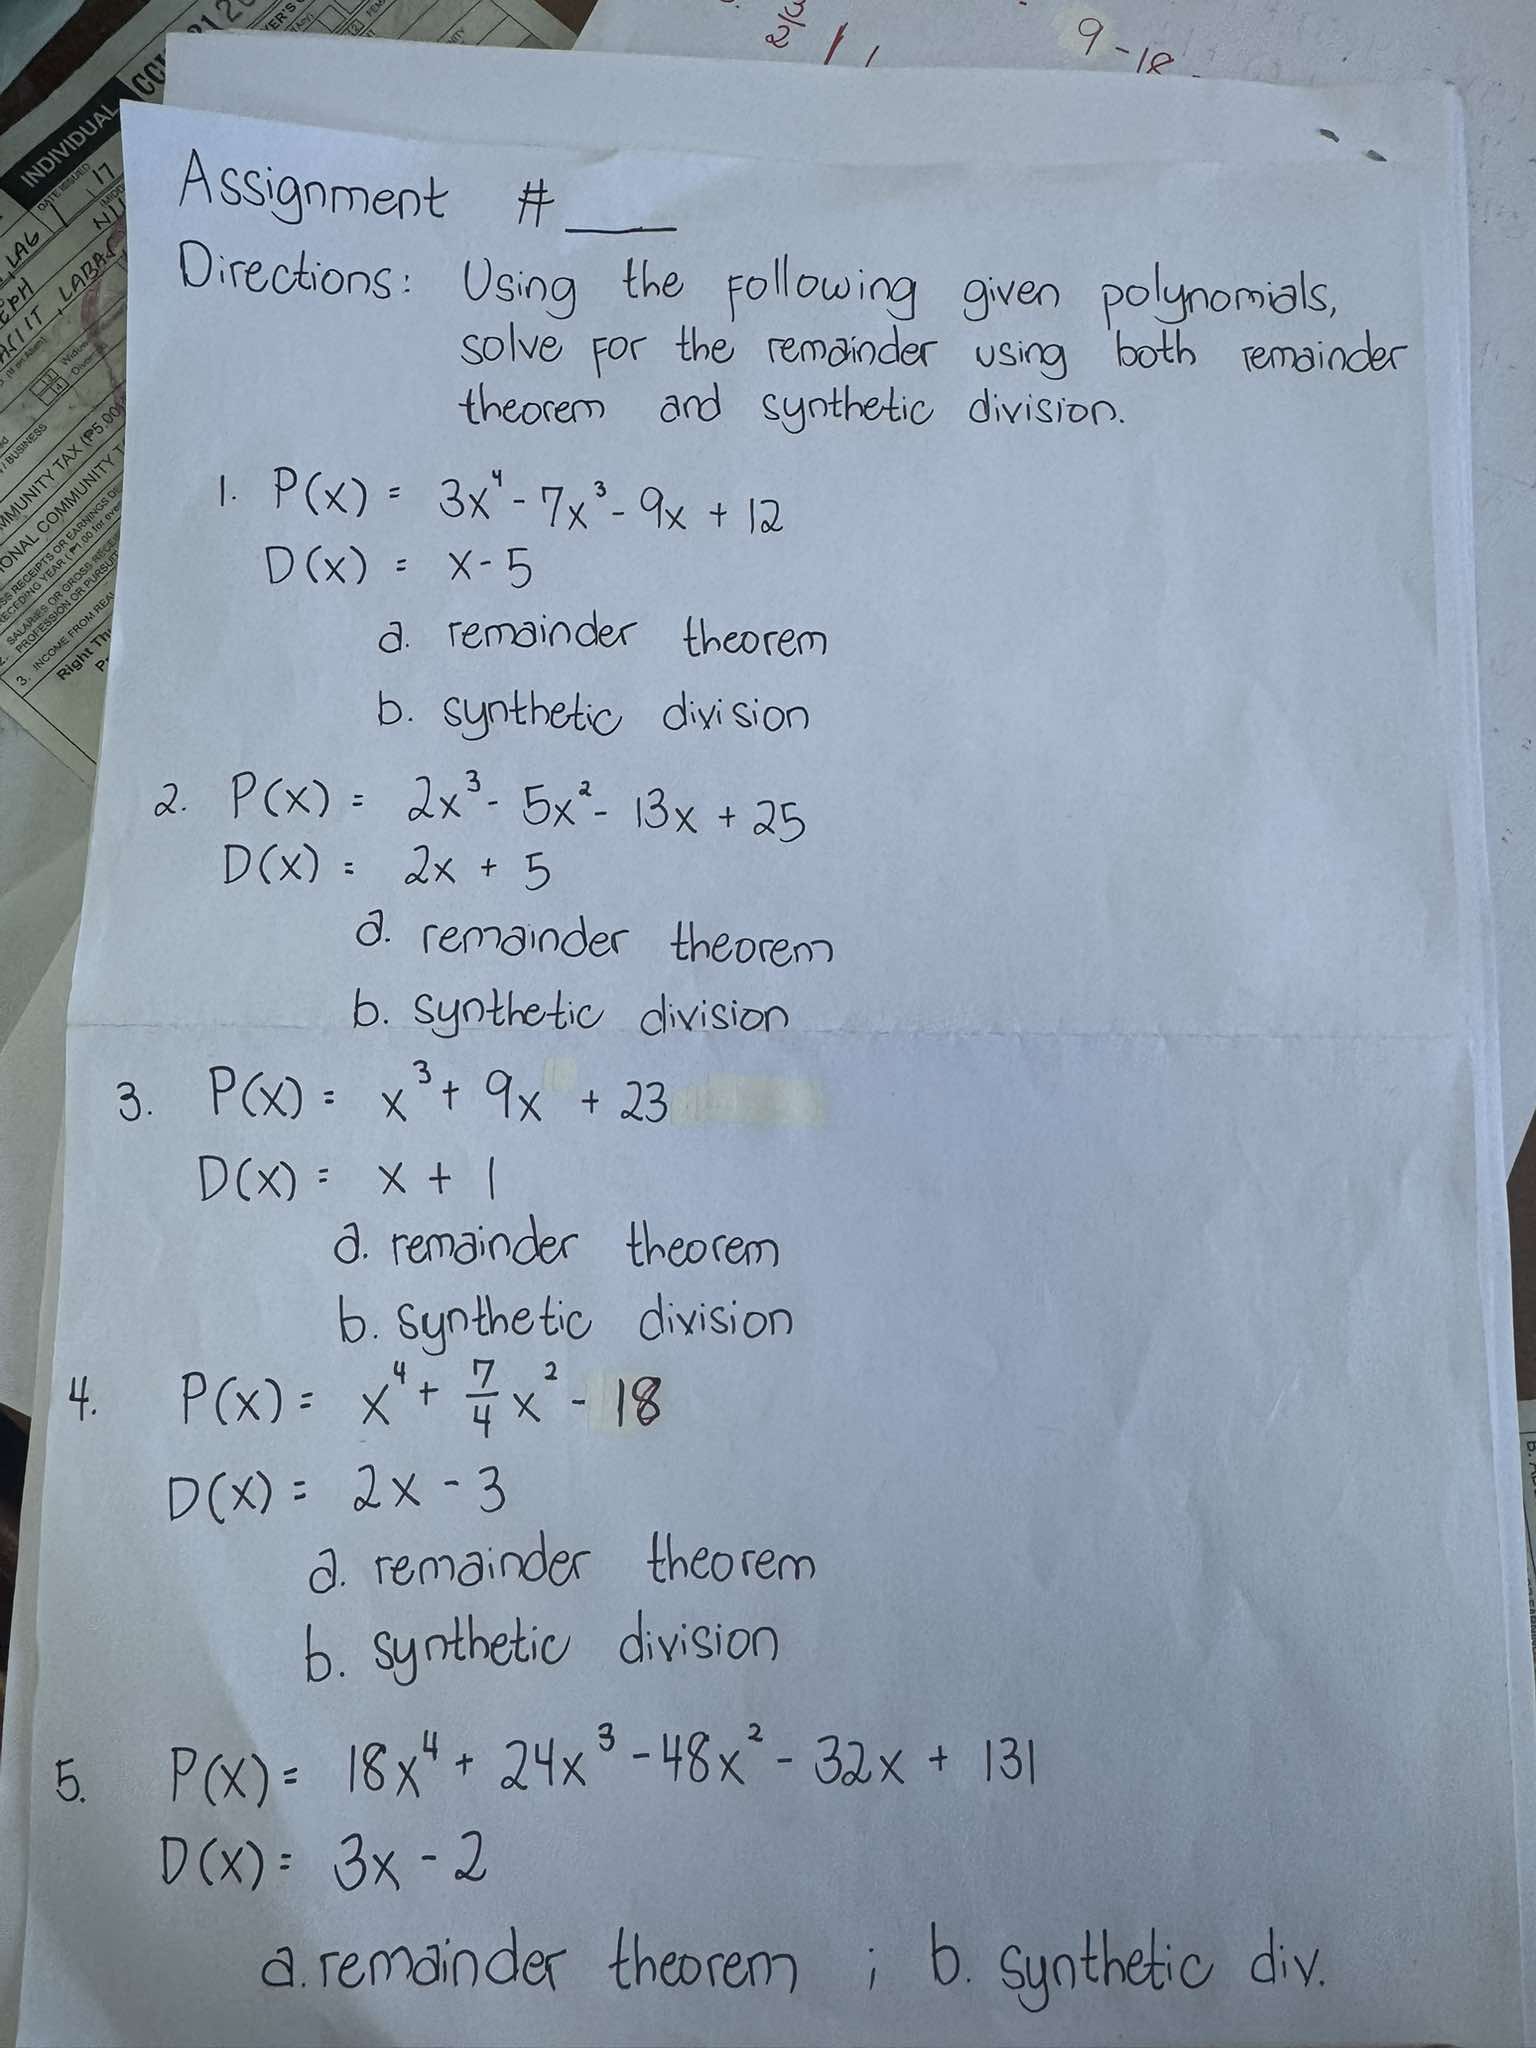 2/3
9-18
CCI
INDIVIDUAL
DATE ISSUED
1 17
LABA
/ BUSINESS
3. INCOME FROM REAL
Assignment # ___
Directions: Using the following given polynomials,
solve for the remainder using both remainder
theorem and synthetic division.
1. P(x) = 3x⁴ - 7x³ - 9x + 12
D(x) = x - 5
a. remainder theorem
b. synthetic division
2. P(x) = 2x³ - 5x² - 13x + 25
D(x) = 2x + 5
a. remainder theorem
b. synthetic division
3. P(x) = x³ + 9x + 23
D(x) = x + 1
a. remainder theorem
b. synthetic division
4. P(x) = x⁴ + 7/4 x² - 18
D(x) = 2x - 3
a. remainder theorem
b. synthetic division
5. P(x) = 18x⁴ + 24x³ - 48x² - 32x + 131
D(x) = 3x - 2
a. remainder theorem ; b. synthetic div.